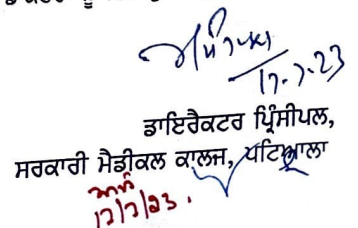 17-7-23
ਡਾਇਰੈਕਟਰ ਪ੍ਰਿੰਸੀਪਲ,
ਸਰਕਾਰੀ ਮੈਡੀਕਲ ਕਾਲਜ, ਪਟਿਆਲਾ
17/7/23.